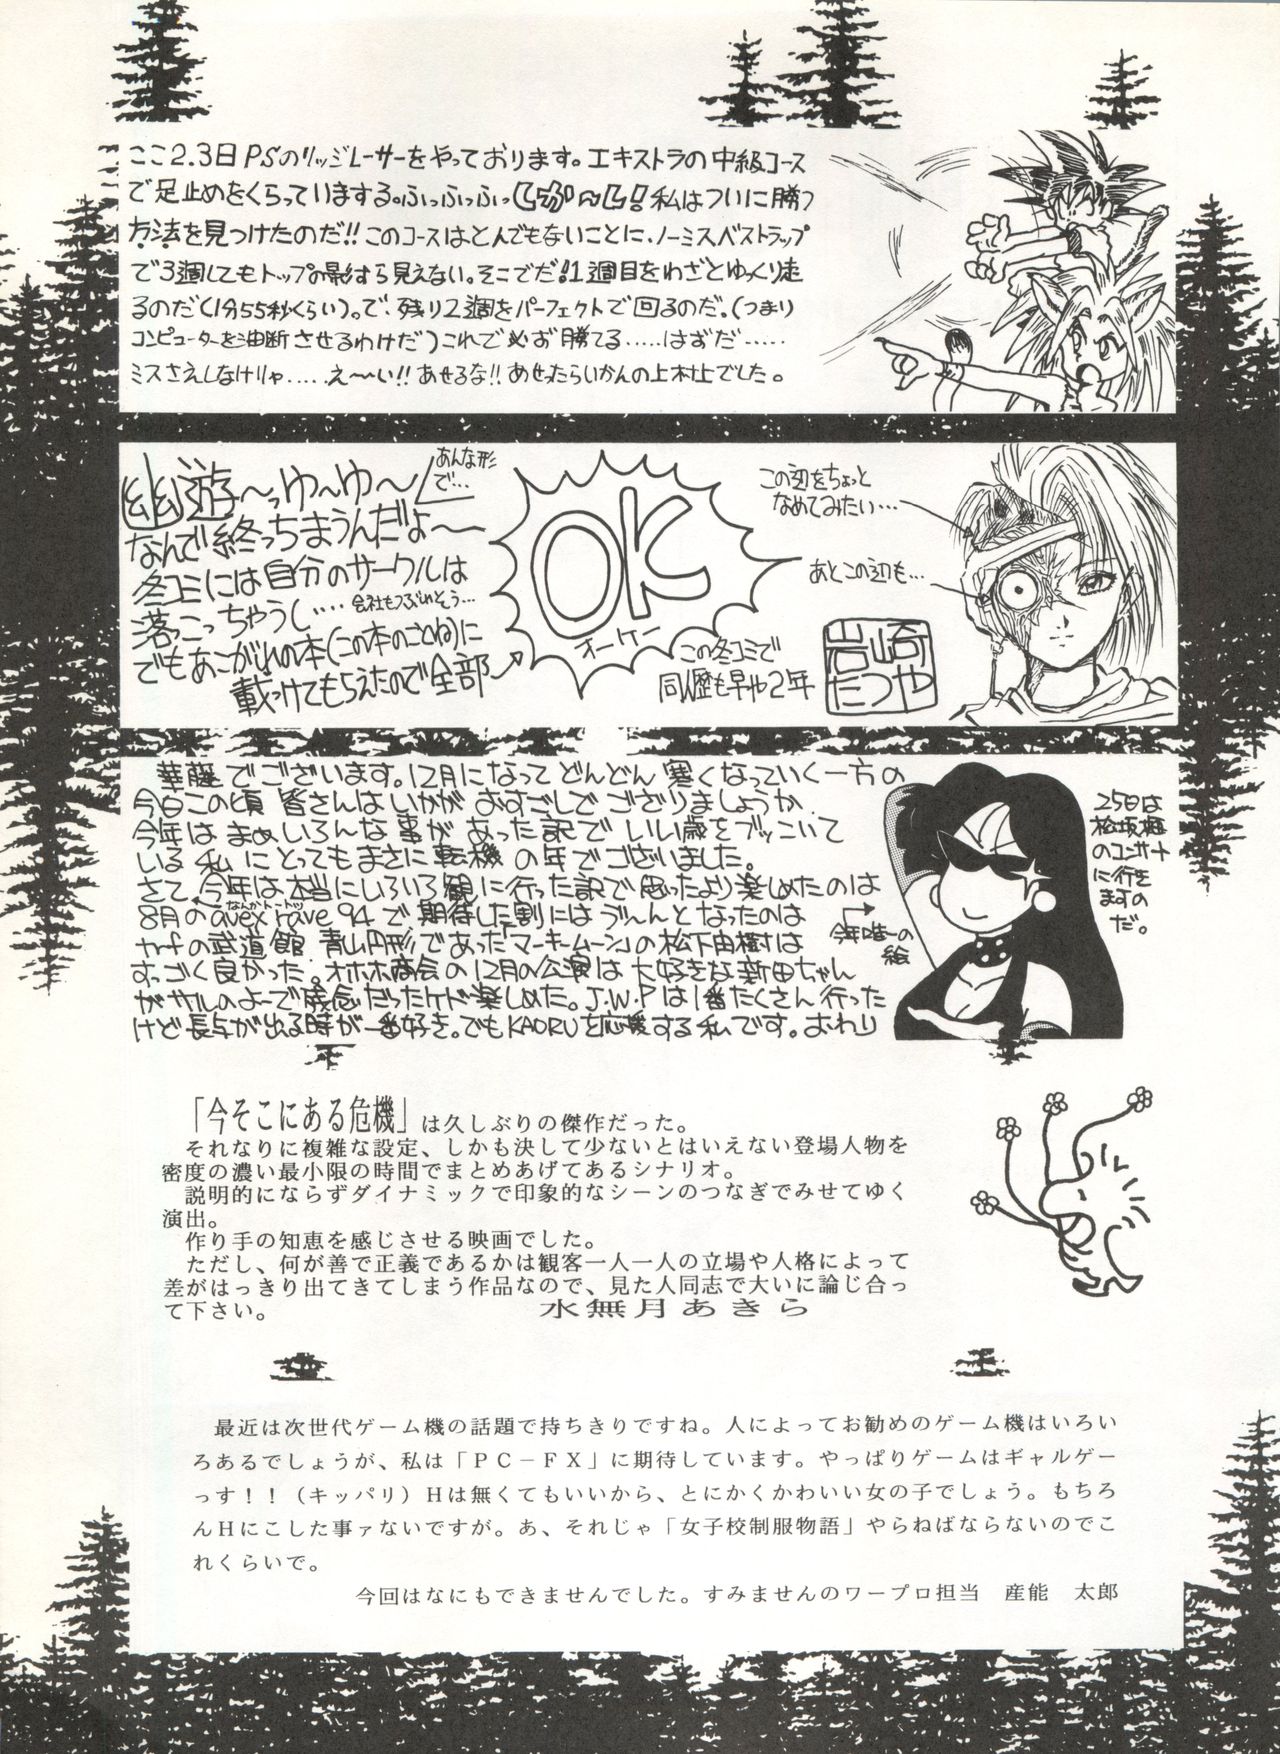 ここ2.3日PSのリッジレーサーをやっております。エキストラの中級コース
で足止めをくらっていまする。ふっふっふっしか～し!私はついに勝つ
方法を見つけたのだ!!このコースはとんでもないことに、ノーミスベストラップ
で3週してもトップの影すら見えない。そこでだ!1週目をわざとゆっくり走
るのだ(1分55秒くらい)。で、残り2週をパーフェクトで回るのだ。(つまり
コンピューターを油断させるわけだ)これで必ず勝てる……はずだ……
ミスさえしなけりゃ……え～い!!あせるな!!あせったらいかんの上村上でした。
幽遊～っゆ～ゆ～
あんな形
で…
なんで終っちまうんだよ～
冬コミには自分のサークルは
落っこっちゃうし…会社もつぶれそう…
でもあこがれの本(この本のことね)に
載っけてもらえたので全部→
OK
オーケー
この冬コミで
同人歴も早や2年
この辺をちょっと
なめてみたい…
あとこの辺も…
岩崎
たつや
華藤でございます。12月になってどんどん寒くなっていく一方の
今日この頃皆さんはいかがおすごしでございましょうか
今年はまぁいろんな事があった訳でいい歳をブッこいて
いる私にとってもまさに転機の年でございました。
さて、今年は本当にいろいろ観に行った訳で思ったより楽しめたのは
8月のavex rave 94で期待した割にはう〜んとなったのは
の武道館 青山円形であった「マーキームーン」の松下由樹は
すっごく良かった。オホホ商会の12月の公演は大好きな新田ちゃん
がヤルのよーで残念だったケド楽しめた。J.W.Pは1番たくさん行った
けど長点が出る時が一番好き。でもKAORUを応援する私です。おわり
今年唯一の
絵
25日は
松坂樹
のコンサート
に行き
ますの
だ。
「今そこにある危機」は久しぶりの傑作だった。
それなりに複雑な設定、しかも決して少ないとはいえない登場人物を
密度の濃い最小限の時間でまとめあげてあるシナリオ。
説明的にならずダイナミックで印象的なシーンのつなぎでみせてゆく
演出。
作り手の知恵を感じさせる映画でした。
ただし、何が善で正義であるかは観客一人一人の立場や人格によって
差がはっきり出てきてしまう作品なので、見た人同志で大いに論じ合っ
て下さい。 水無月あきら
最近は次世代ゲーム機の話題で持ちきりですね。人によってお勧めのゲーム機はいろい
ろあるでしょうが、私は「PC－FX」に期待しています。やっぱりゲームはギャルゲー
っす！！（キッパリ）Hは無くてもいいから、とにかくかわいい女の子でしょう。もちろ
んHにこした事ァないですが。あ、それじゃ「女子校制服物語」やらねばならないのでこ
れくらいで。
今回はなにもできませんでした。すみませんのワープロ担当 産能 太郎